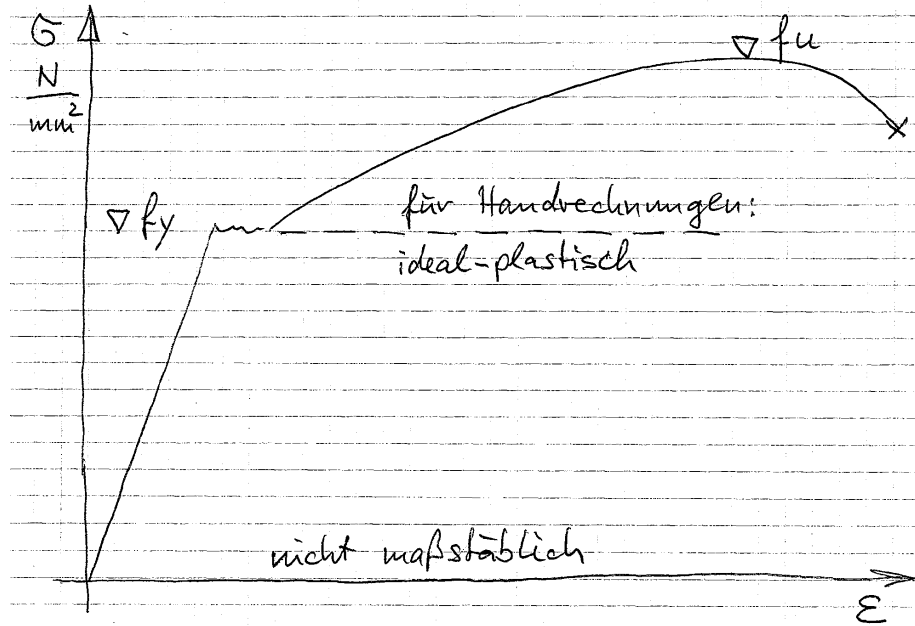 σ
N
mm²
▽ fu
▽ fy
für Handrechnungen:
ideal-plastisch
nicht maßstäblich
ε